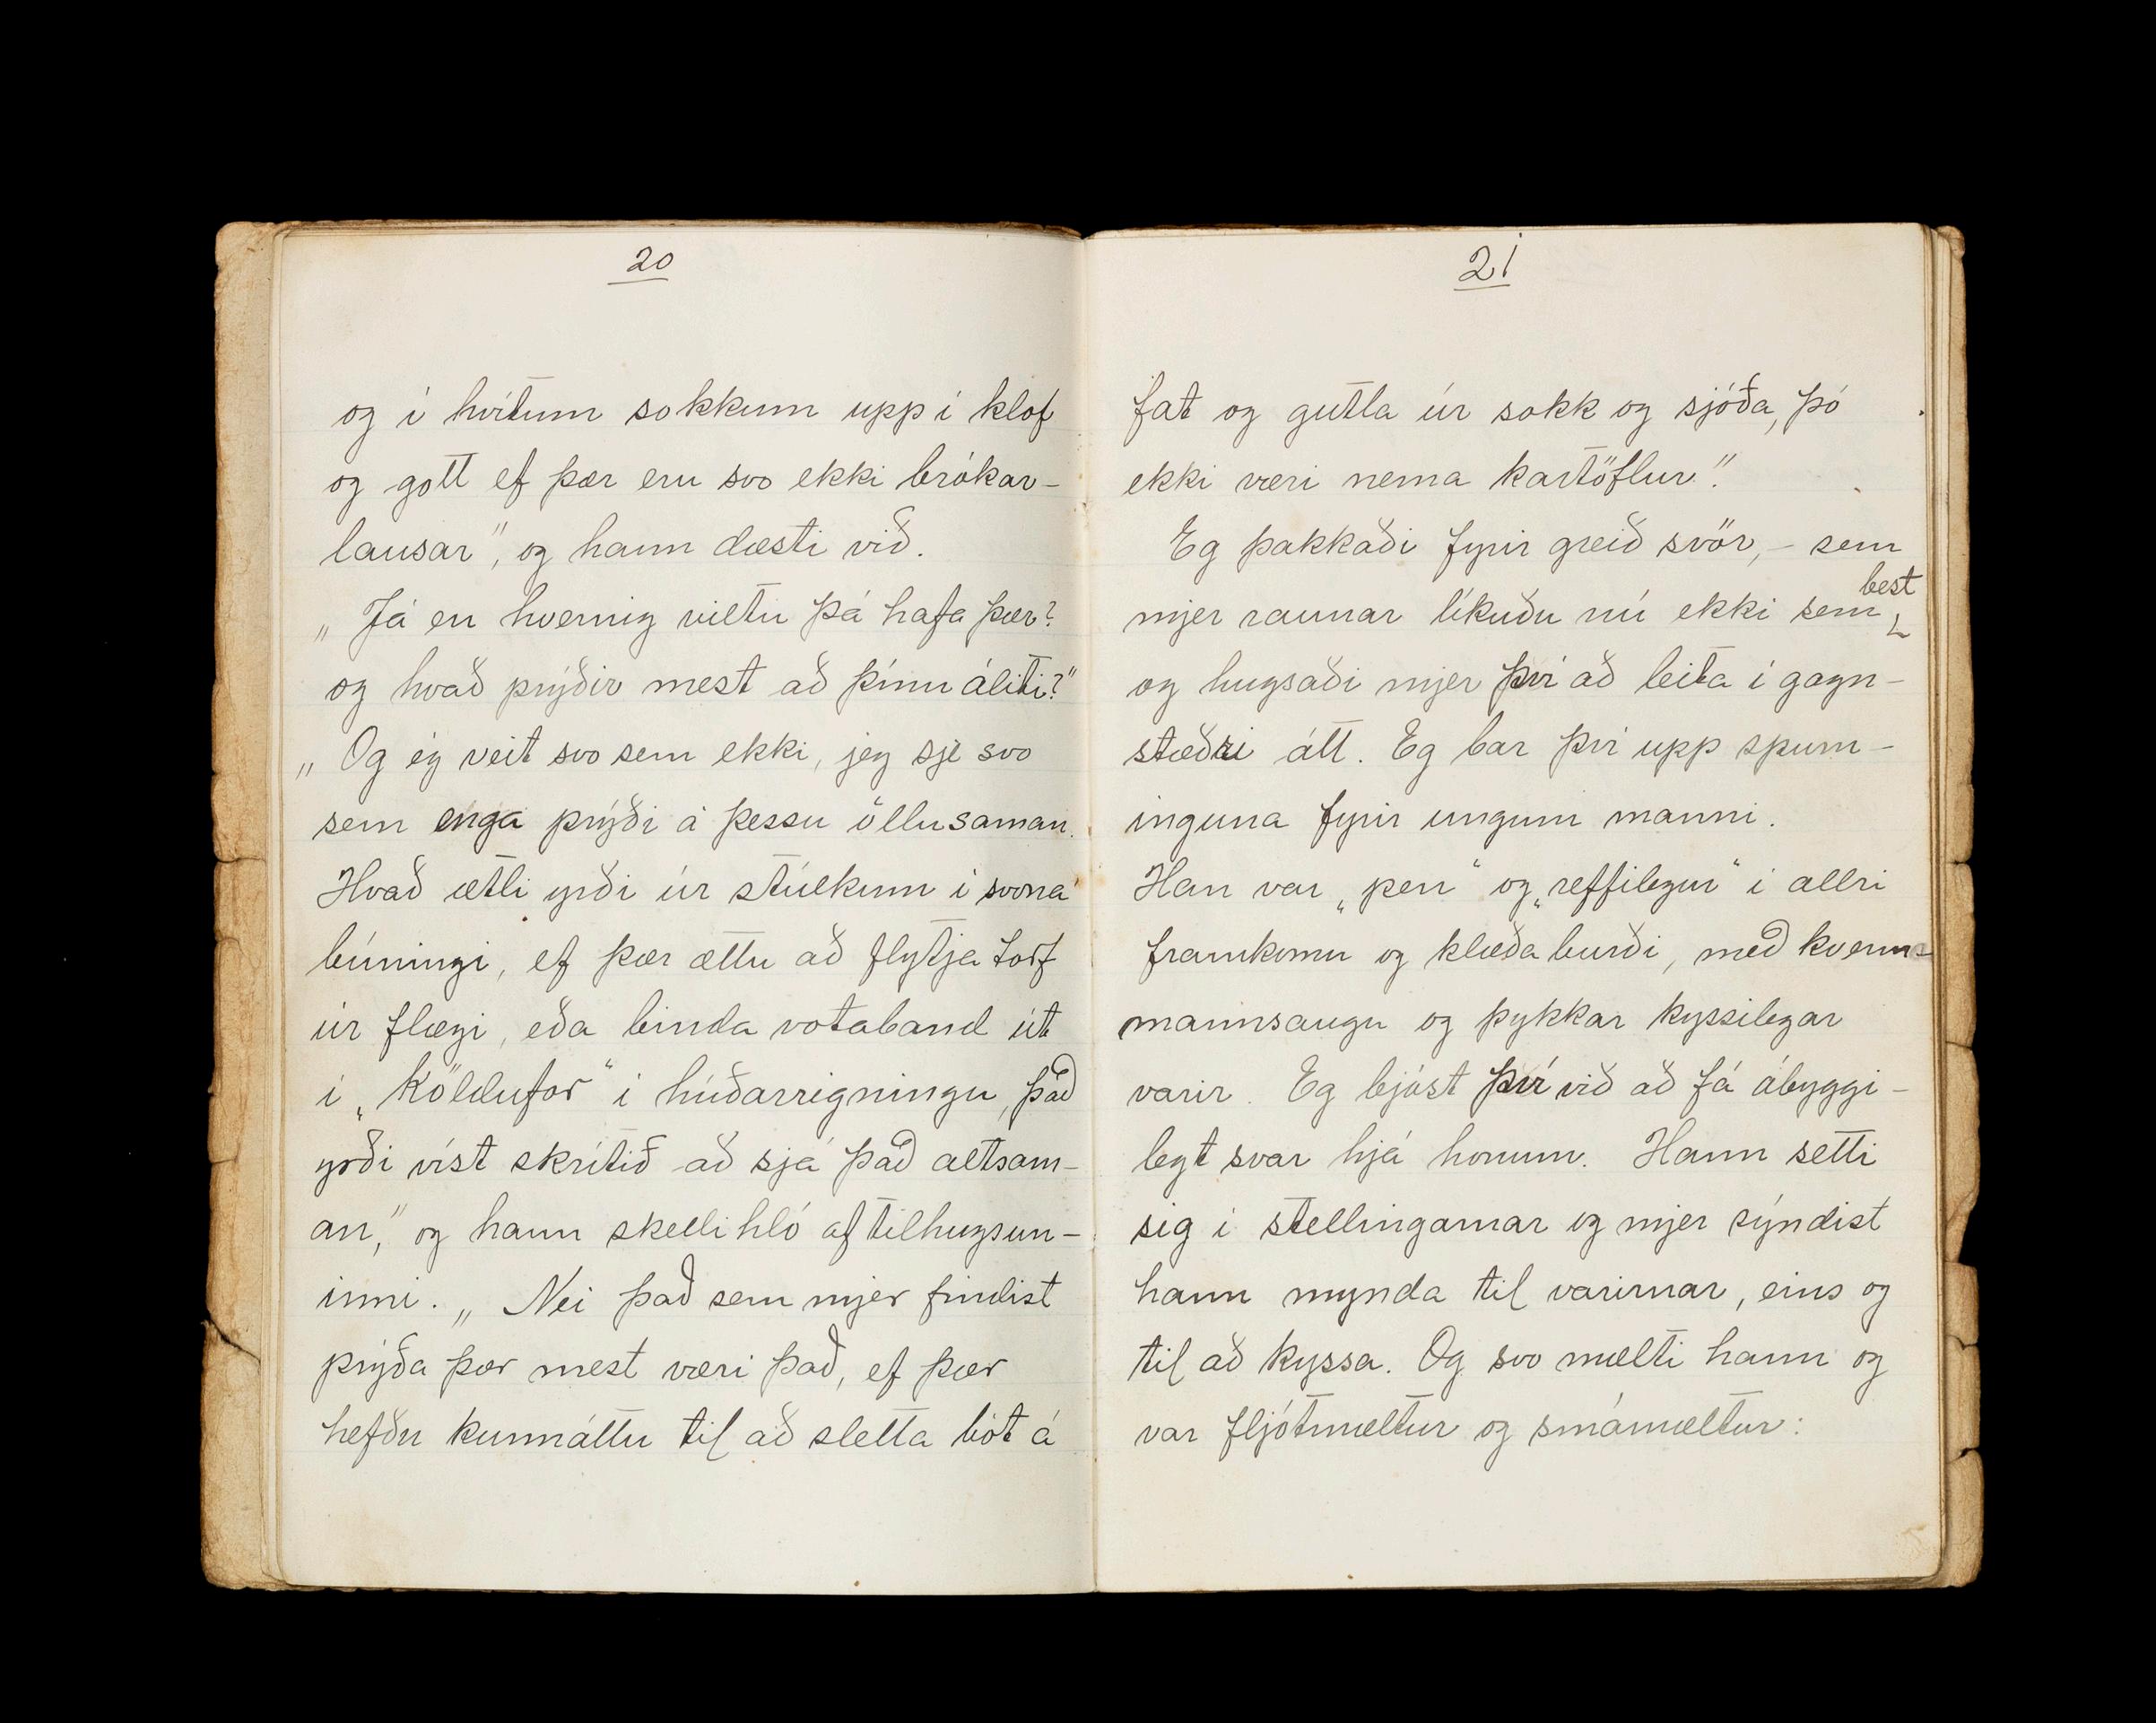 20
og í hvítum sokkum upp í klof
og gott ef þær eru svo ekki brókar-
lausar", og hann dæsti við.
„Já en hvernig viltu þá hafa þær?
og hvað prýðir mest að þínu áliti?"
„Og ég veit svo sem ekki, jeg sje svo
sem enga prýði á þessu öllusaman.
Hvað ætli yrði úr stúlkum í svona
búningi, ef þær ættu að flytja torf
úr flægi, eða binda votaband út
í „Köldufor" í húðarrigningu, það
yrði víst skrítið að sjá það altsam-
an," og hann skellihló af tilhugsun-
inni. „Nei það sem mjer findist
prýða þær mest væri það, ef þær
hefðu kunnáttu til að sletta bót á
21
fat og gutla úr sokk og sjóða, þó
ekki væri nema kartöflur."
Eg þakkaði fyrir greið svör, - sem
mjer raunar líkuðu nú ekki sem best
og hugsaði mjer því að leita í gagn-
stæðri átt. Eg bar því upp spurn-
inguna fyrir ungum manni.
Han var „pen" og „reffilegur" í allri
framkomu og klæðaburði, með kvenn-
mannsaugu og þykkar kyssilegar
varir. Eg bjóst því við að fá ábyggi-
legt svar hjá honum. Hann setti
sig í stellingarnar og mjer sýndist
hann mynda til varirnar, eins og
til að kyssa. Og svo mælti hann og
var fljótmæltur og smámæltur: